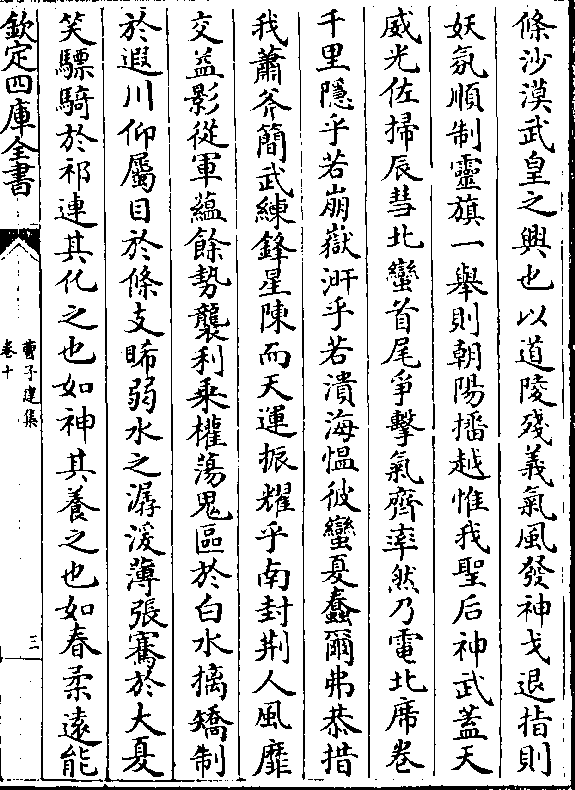 條沙漠武皇之興也以道陵殘義氣風發神戈退指則
妖氛順制靈旗一舉則朝陽播越惟我聖后神武蓋天
威光佐掃辰彗北彎首尾爭擊氣齊率然乃電北席卷
千里隱乎若崩嶽㳎乎若潰海愠彼蠻夏蠢爾弗恭措
我蕭斧簡武練鋒星陳而天運振耀乎南封荆人風靡
交益影從軍蘊餘勢襲利乘權蕩鬼區於白水擒矯制
於遐川仰屬目於條支晞弱水之潺湲薄張騫於大夏
笑驃騎於祁連其化之也如神其養之也如春柔遠能
欽定四庫全書
曹子建集
卷十
三